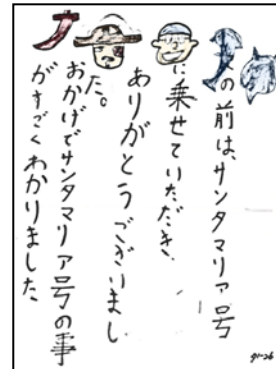 の前は、サンタマリア号
に乗せていただき、
ありがとうございまし
た。
おかげでサンタマリア号の事
がすごくわかりました